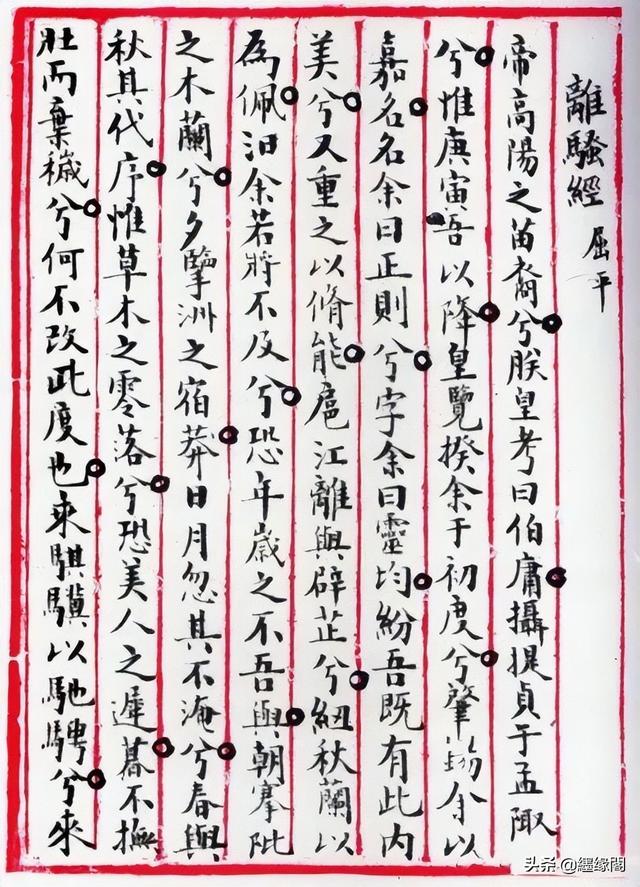 離騷經 屈平
帝高陽之苗裔兮朕皇考曰伯庸攝提貞于孟陬
兮惟庚寅吾以降皇覽揆余于初度兮肇錫余以
嘉名名余曰正則兮字余曰靈均紛吾既有此內
美兮又重之以脩能扈江離與辟芷兮紉秋蘭以
為佩汨余若將不及兮恐年歲之不吾與朝搴阰
之木蘭兮夕擥洲之宿莽日月忽其不淹兮春與
秋其代序惟草木之零落兮恐美人之遲暮不撫
壯而棄穢兮何不改此度也乘騏驥以馳騁兮來
头条 @缘閣